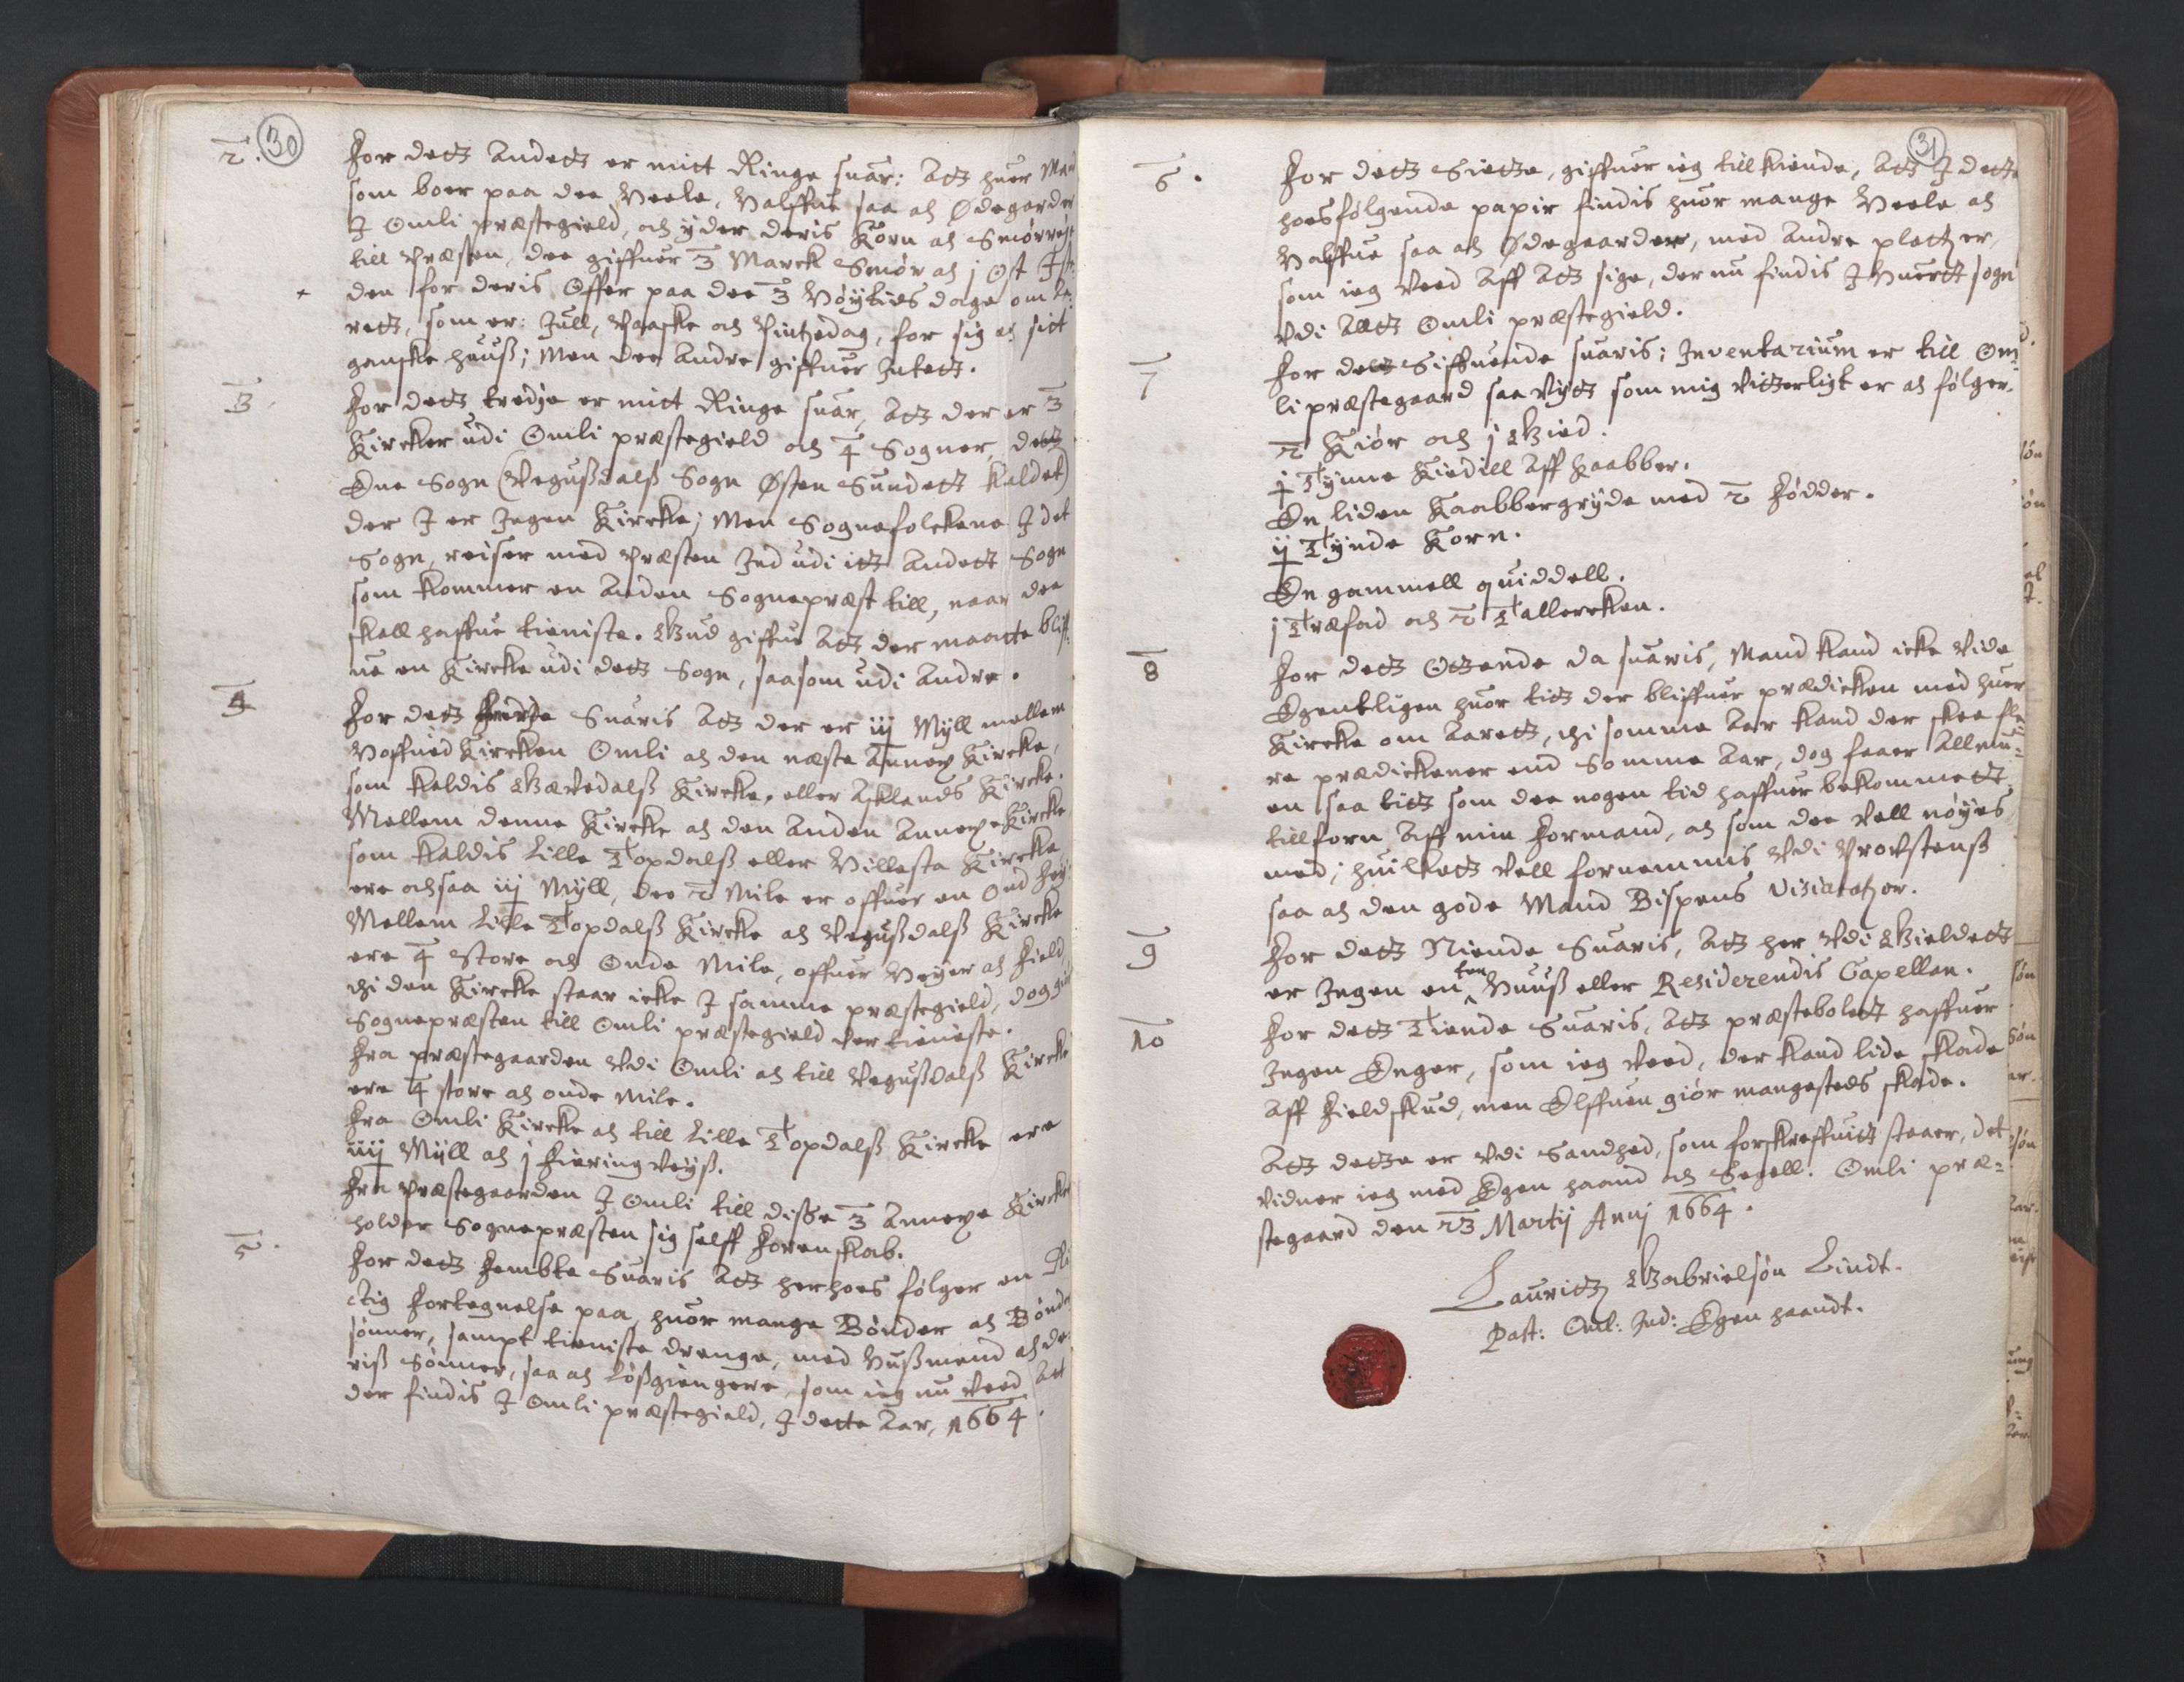 30
2.
For dett Andett er mitt Ringe suar: Att huer Mand
som boer paa dee Heele, Halffue saa och Ødegaarder
I Omli præstegield, och ÿder deris Korn och Smørrest
till Præsten, dee giffuer 3 Marck Smør och j Ost
den for deris Offer paa dee 3 Høÿtids dage om Aa-
rett, som er: Jull, Paaske och Pintzedag, for sig och sitt
gandske huuß; Men dee Andre giffuer Intett.
3
For dett tredje er mitt Ringe suar, Att der er 3
Kircker udi Omli præstegield och 4 Sogner, dett
Ene Sogn (Vegußdalß Sogn Østen Sundett kaldet)
der I er Ingen Kircke; Men Sognefolckene I det
Sogn, reiser med Præsten Ind udi itt Andett Sogn
som kommer en Anden Sognepræst till, naar dee
skall haffue tieniste. Gud giffue Att der maatte bliff-
ue en Kircke udi dett Sogn, saasom udi Andre.
4
For dett fierde Suaris Att der er iij Mÿll mellem
Hoffued Kircken Omli och den næste Annex Kircke,
som kaldis Gævedalß Kircke, eller Asklands Kircke.
Mellem denne Kircke och den Anden Annexe Kircke
som kaldis Lille Topdalß eller Hillesta Kircke
ere ochsaa iij Mÿll, dee 2 Mile er offuer en Ond heÿ.
Mellem Lille Topdalß Kircke och Vegußdalß Kircke
ere 4 store och Onde Mile, offuer Heÿer och Field,
thi den Kircke staar icke I samme præstegield, dog giør
Sognepræsten till Omli præstegield der tieniste.
Fra præstegaarden Vdi Omli och till Vegußdalß Kircke
ere 4 store och onde Mile.
Fra Omli Kircke och till Lille Topdalß Kircke ere
iiij Mÿll och j Fiering Veÿß.
Fra Præstegaarden I Omli till disse 3 Annexe Kircker
holder Sognepræsten sig selff Forenskab.
5.
For dett Fembte Suaris Att herhoes følger en Ri-
ctig Fortegnelse paa, huor mange Bønder och Bønder
sønner, sampt tieniste drenge, med Hußmend och de-
riß Sønner, saa och Løßgiengere, som ieg nu Veed Att
der findis I Omli præstegield, I dette Aar, 1664.
31
6.
For dett Siette, giffuer ieg tillkiende, Att I dette
hoesfølgende papir findis huor mange Heele och
Halffue saa och Ødegaarder, med Andre pladtzer,
som ieg Veed Aff Att sige, der nu findis I Huertt sogn
Vdi Altt Omli præstegield.
7
For dett Siffuende suaris; Inventarium er till Om-
li præstegaard saa Vÿtt som mig Vitterligt er och følger.
2 Kiør och j Gied.
j Tÿnne Kiedill Aff Kaabber.
En liden Kaabbergrÿde med 2 Fødder.
ij Tÿnde Korn.
En gammell quiddell.
j Træfad och 2 Tallercken.
8
For dett Ottende da suaris, Mand kand icke Vide
Egentligen huor titt der bliffuer prædicken med huer
Kircke om Aarett, thi somme Aar kand der skee fle-
re prædickener end Somme Aar, dog faaer Allmu-
en saa titt som dee nogen tid haffuer bekommett
tillforn Aff min Formand, och som dee Vell nøÿes
med; huilkett Vell fornemmis Vdi Provstenß
saa och den gode Mand Bispens Visitatzer.
9
For dett Niende Suaris, Att her Vdi Gieldett
er Ingen en ten Huuß eller Residerendis Capellan.
10
For dett Tiende Suaris, Att præstebolett haffuer
Ingen Enger, som ieg Veed, der kand lide skade
Aff Fieldskud, men Elffuen giør mangesteds skade.
Att dette er Vdi Sandhed, som forskreffuitt staaer, det
Vidner ieg med Egen haand och Segell. Omli præ-
stegaard den 23 Martij Anni 1664.
Lauritz Gabrielsøn Lindt.
Past: Oml: Ind: Egen haandt.